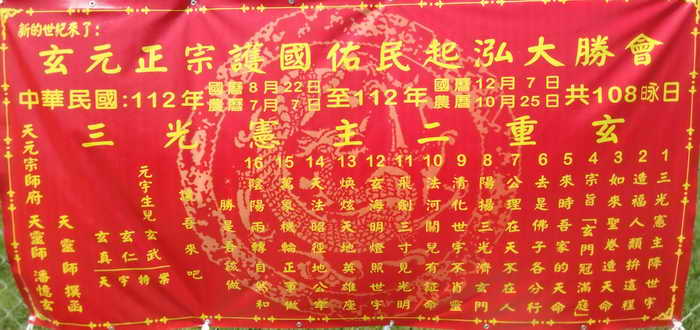 新的世紀來了：
玄元正宗護國佑民起泓大勝會
中華民國：112年 國曆8月22日 農曆7月7日 至112年 國曆12月7日 農曆10月25日 共108昹日
三光憲主二重玄
1 三光憲主降世宇
2 造福人類拚這程
3 如來聖卷造天命
4 宗旨「玄門冠滿庭」
5 來時吾家的天命
6 去是佛子各分行
7 公理在天不在人
8 陽揚三光濟玄門
9 清化世宇不肖靈
10 法河關兒有証命
11 飛劍三寸見光明
12 玄海明燈照世宇
13 煥炫天地英雄座
14 天法昭徑地公牽
15 萬象機輪正重
16 陰陽兩轉自然和
勝是吾該做
吾來吧
元宇生兒 玄武
玄仁
玄真
天宇特業
天靈師 撰函
天元宗師府 天靈師 潘憶玄